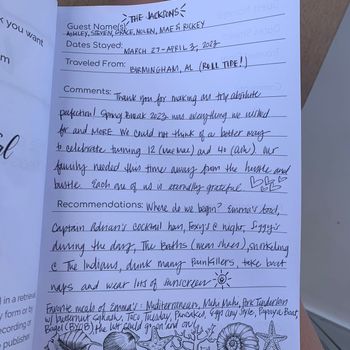 k you want
m
al
d in a retrieval
y form or by
recording or
publisher.
THE JACKSONS
Guest Name(s): ASHLEY, STEVEN, GRACE, NOLEN, MAE & RICKEY
Dates Stayed: MARCH 27 - APRIL 3, 2023
Traveled From: BIRMINGHAM, AL (ROLL TIDE!)
Comments: Thank you for making our trip absolute
perfection! Spring Break 2023 was everything we wished
for and MORE. We could not think of a better way
to celebrate turning 12 (Mae Mae) and 40 (Ash). Our
family needed this time away from the hustle and
bustle. Each one of us is eternally grateful.
Recommendations: Where do we begin? Emma's food,
Captain Adrian's cocktail hour, Foxy's @ night, Siggy's
during the day, The Baths (wear shoes), snorkeling
@ The Indians, drink many Painkillers, take boat
naps and wear lots of sunscreen
Favorite meals of Emma's: Mediterranean, Mahi Mahi, Pork Tenderloin
w/ butternut squash, Taco Tuesday, Pancakes, Eggs any Style, Papaya Boat,
Bagel (BYOB) the list could go on and on!